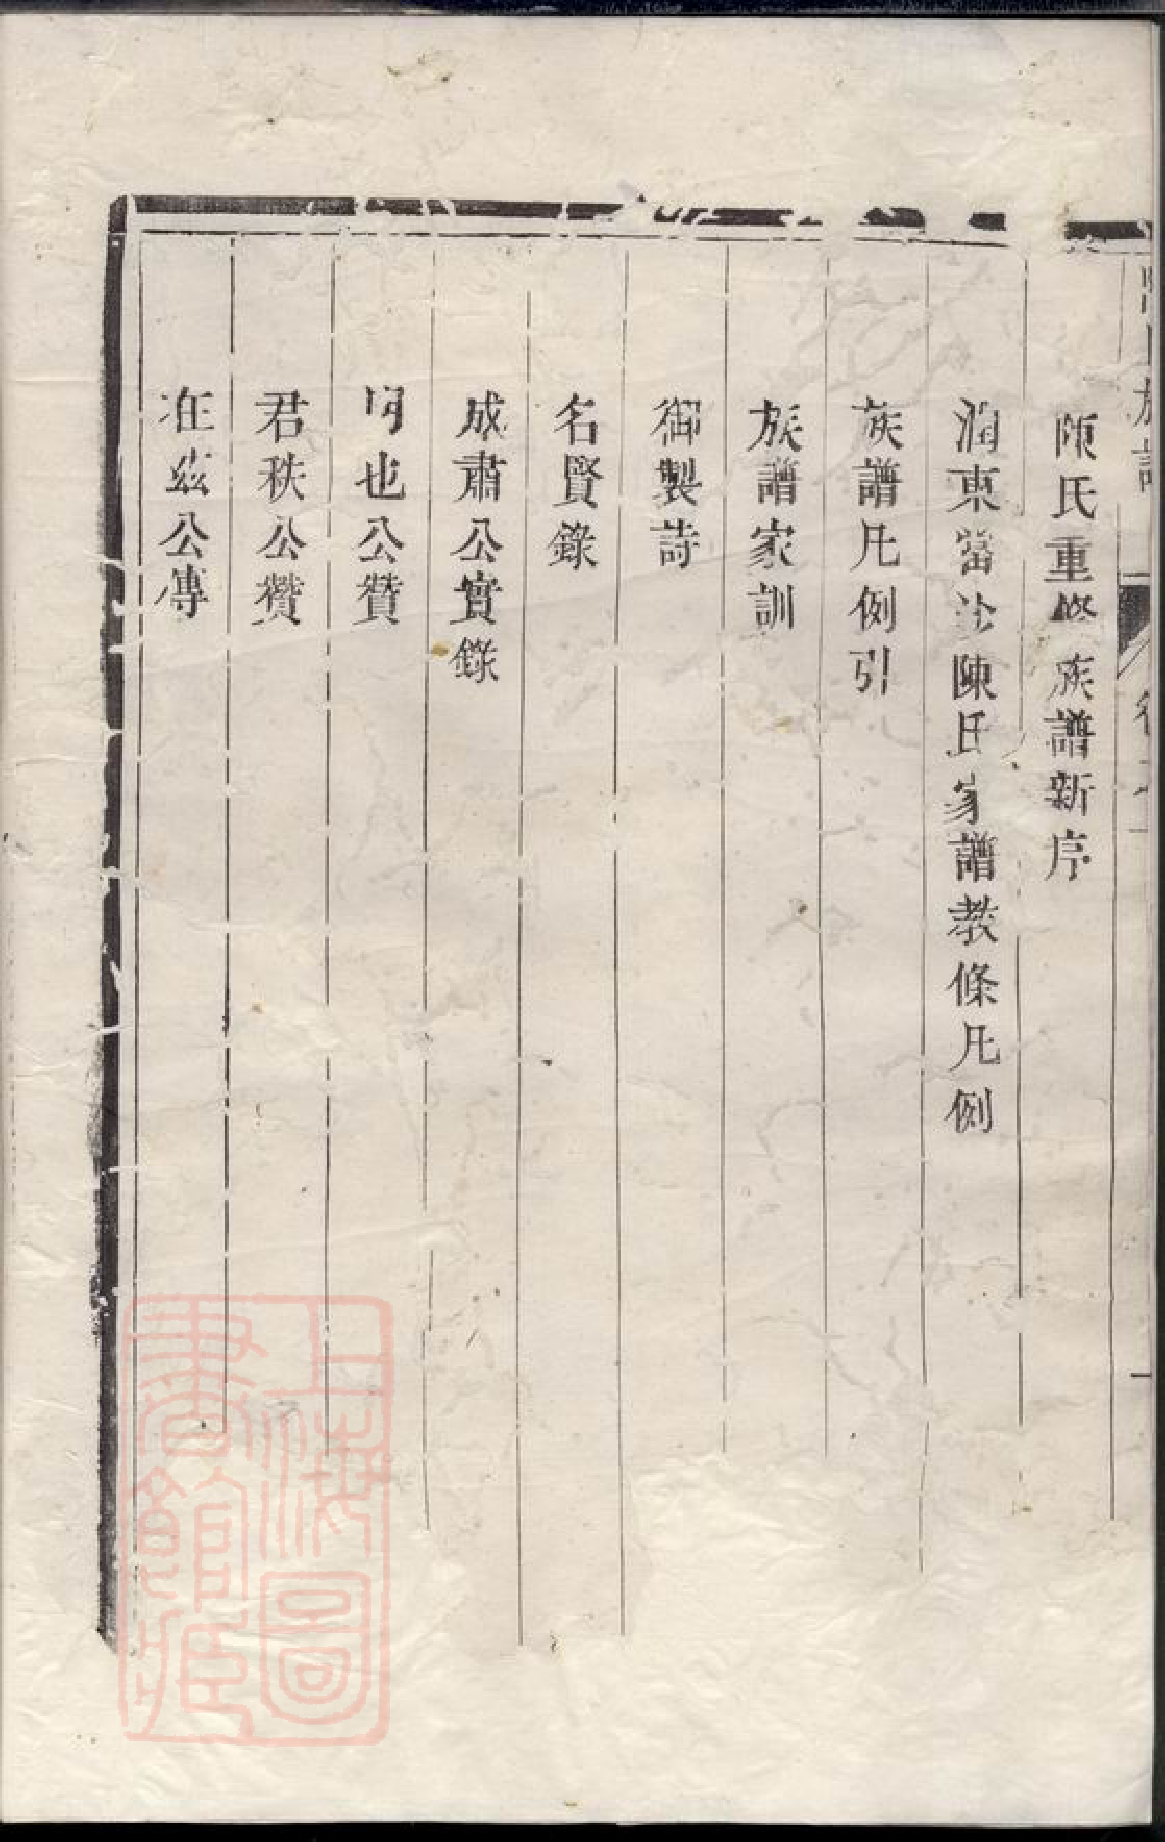 陳氏重修族譜新序
潤東當沙陳氏家譜教條凡例
族譜凡例引
族譜家訓
御製詩
名賢錄
成肅公實錄
可也公贊
君秩公贊
在茲公傳
上海圖
書館藏